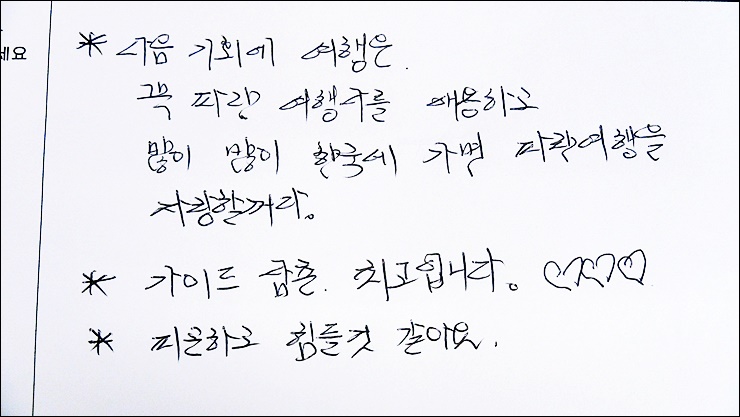 세요
* 다음 기회에 여행은
꼭 파란 여행사를 애용하고
많이 많이 한국에 가면 파란여행을
자랑할꺼다。
* 가이드 삼촌. 최고입니다。♡♡♡
* 피곤하고 힘들것 같아요.